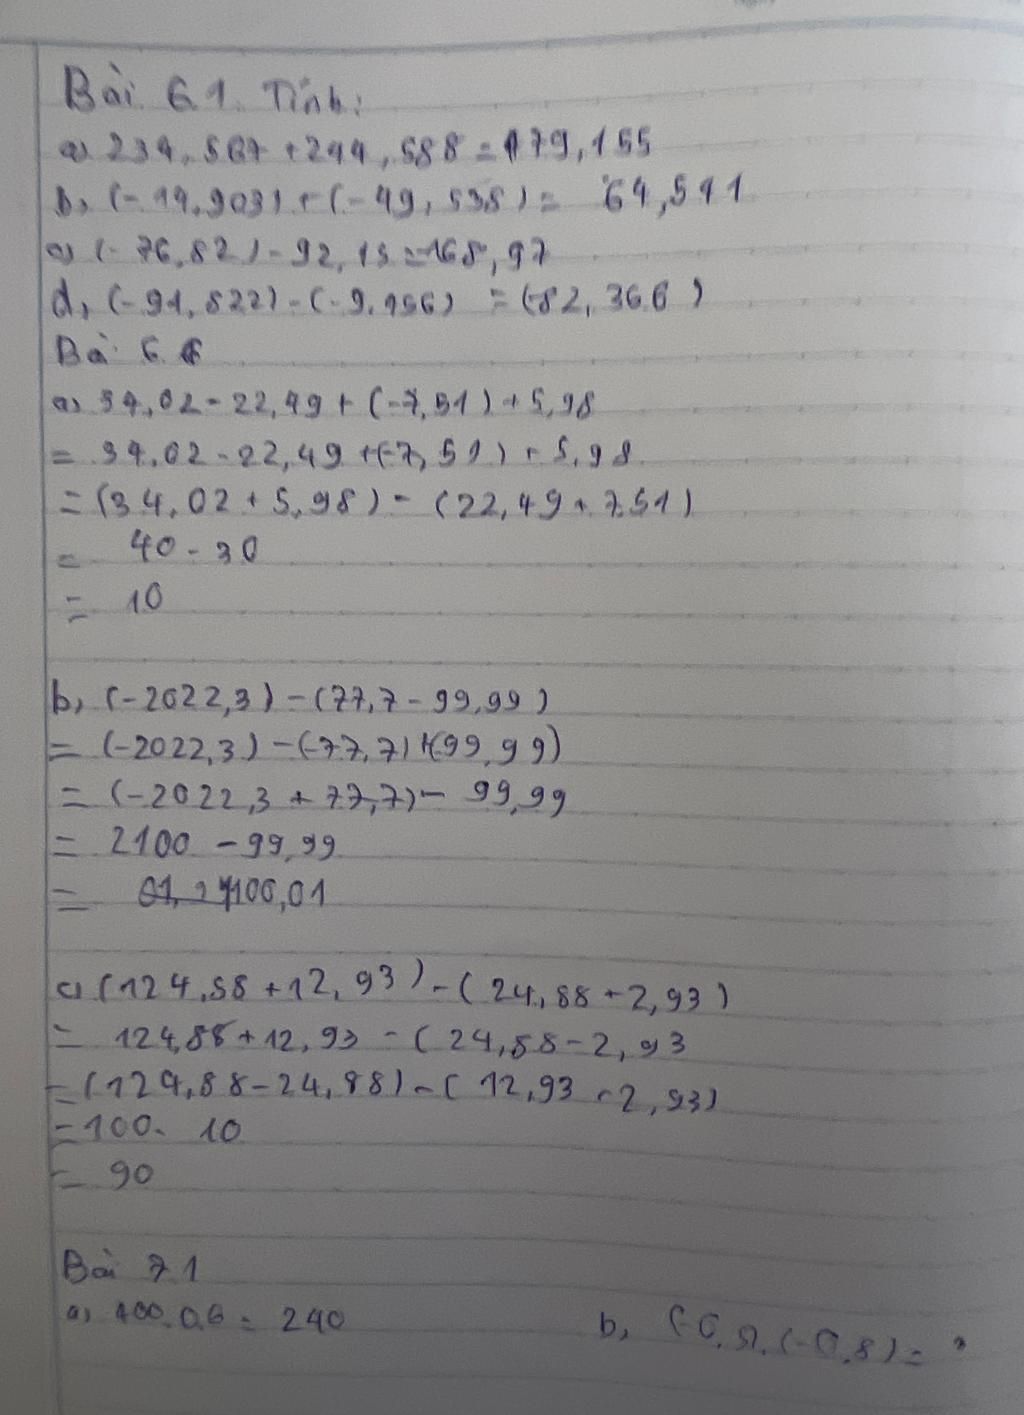 Bài 6.1. Tính:
a) 234,567 + 244,588 = 179,155
b, (-14,903) + (-49,538) = 64,511
c) (-76,82) - 92,15 = -168,97
d, (-91,822) - (-9,456) = (-82,366)
Bài 6.6
a) 34,02 - 22,49 + (-7,51) + 5,98
= 34,02 - 22,49 + (-7,51) + 5,98
= (34,02 + 5,98) - (22,49 + 7,51)
= 40 - 30
= 10
b, (-2022,3) - (77,7 - 99,99)
= (-2022,3) - (-77,7) + (-99,99)
= (-2022,3 + 77,7) - 99,99
= 2100 - 99,99
= 100,01
c) (124,88 + 12,93) - (24,88 + 2,93)
= 124,88 + 12,93 - (24,88 - 2,93
= (124,88 - 24,88) - (12,93 - 2,93)
= 100 - 10
= 90
Bài 7.1
a) 400.0,6 = 240 b, (-0,5).(-0,8) = ?